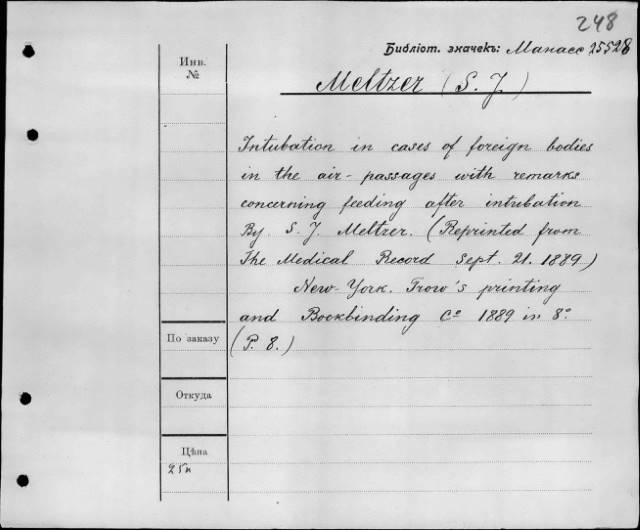 248
Библіот. значекъ: Манасс 25528
Инв.
№
Meltzer (S. J.)
Intubation in cases of foreign bodies
in the air-passages with remarks
concerning feeding after intubation
By S. J. Meltzer. (Reprinted from
The Medical Record Sept. 21. 1889)
New-York. Trow's printing
and Bookbinding Cº 1889 in 8º
(P. 8.)
По заказу
Откуда
Цѣна
25к